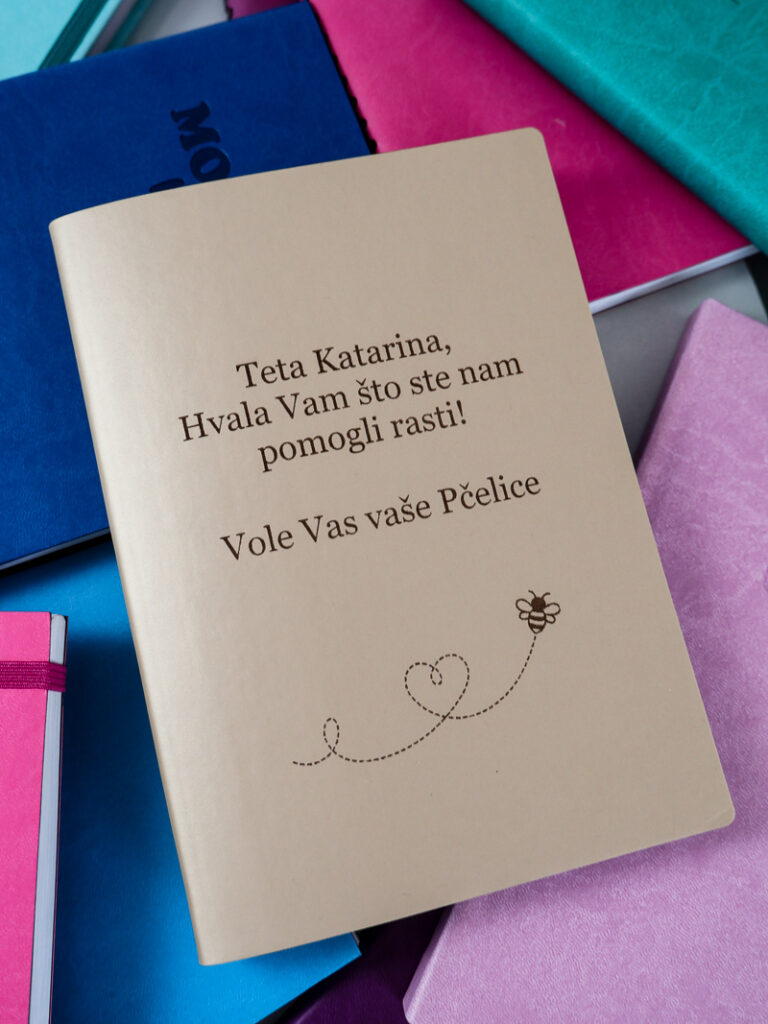 MO
Teta Katarina,
Hvala Vam što ste nam
pomogli rasti!
Vole Vas vaše Pčelice